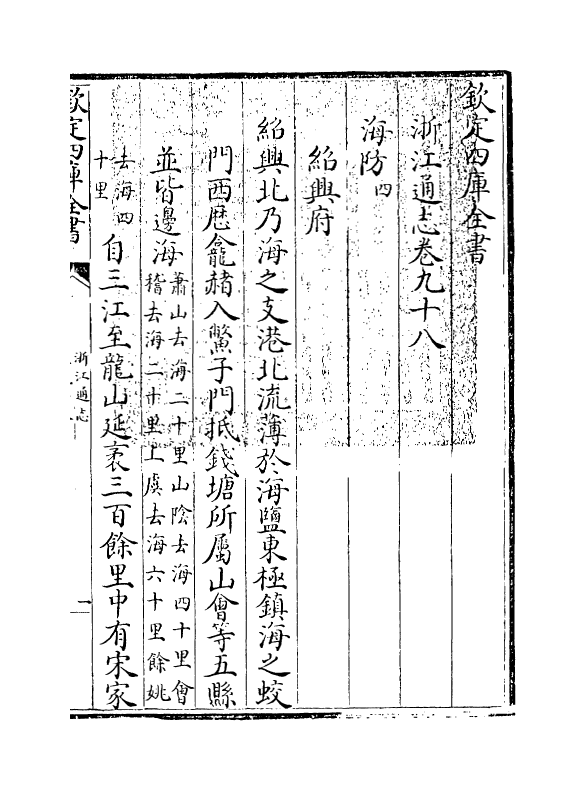 欽定四庫全書
浙江通志卷九十八
海防四
紹興府
紹興北乃海之支港北流薄於海鹽東極鎮海之蛟
門西厯龕赭入鱉子門抵錢塘所屬山會等五縣
並皆邊海蕭山去海二十里山陰去海四十里會
稽去海二十里上虞去海六十里餘姚
去海四
十里自三江至龍山延袤三百餘里中有宋家
欽定四庫全書
浙江通志
一